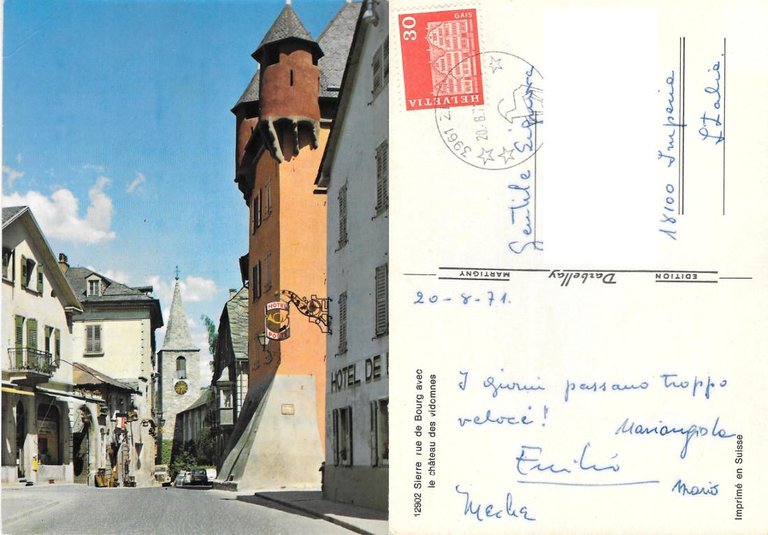 HOTEL
POSTE
HOTEL DE L
12902 Sierre rue de Bourg avec
le château des vidomnes
30
GIVO
HELVETIA
3961
20.8.7
Gentile Signora
18100 Imperia
Italia
EDITION Darbellay MARTIGNY
20-8-71.
I giorni passano troppo
veloci!
Mariangela
Emilio
Mario
Imprimé en Suisse